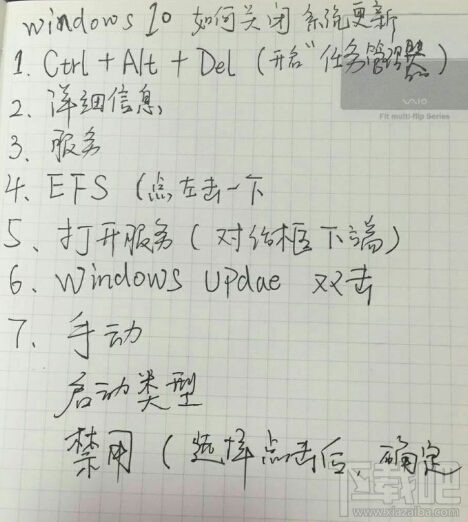 windows 10 如何关闭系统更新
1. Ctrl + Alt + Del (开启"任务管理器)
VAIO
Fit multi-flip Series
2、详细信息
3、服务
4、EFS (点左击一下
5、打开服务 (对话框下端)
6、Windows Updae 双击
7、手动
启动类型
禁用 (选择点击后、确定
下载吧
www.xiazaiba.com